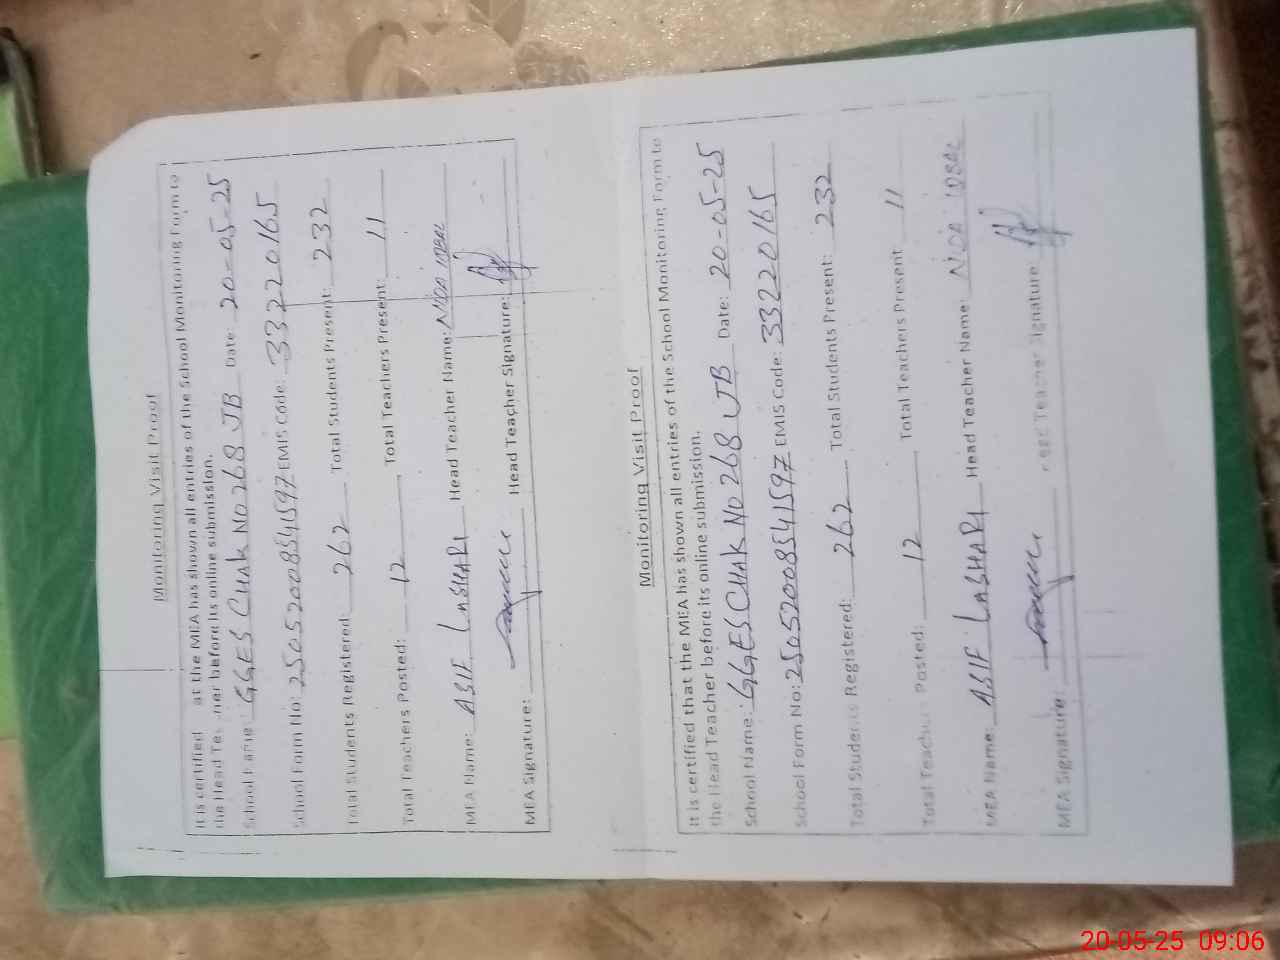 Monitoring Visit Proof
It is certified at the MEA has shown all entries of the School Monitoring Form to
the Head Te ner before its online submission.
School Name: GGES CHAK NO 268 JB Date: 20-05-25
School Form No: 25052008541597 EMIS Code: 33220165
Total Students Registered: 262 Total Students Present: 232
Total Teachers Posted: 12 Total Teachers Present: 11
MEA Name: ASIF LASHARI Head Teacher Name: NIDA IQBAL
MEA Signature: Head Teacher Signature:
Monitoring Visit Proof
It is certified that the MEA has shown all entries of the School Monitoring Form to
the Head Teacher before its online submission.
School Name: GGES CHAK NO 268 JB Date: 20-05-25
School Form No: 25052008541597 EMIS Code: 33220165
Total Students Registered: 262 Total Students Present: 232
Total Teachers Posted: 12 Total Teachers Present 11
MEA Name: ASIF LASHARI Head Teacher Name: NIDA IQBAL
MEA Signature: Head Teacher Signature:
20-05-25 09:06